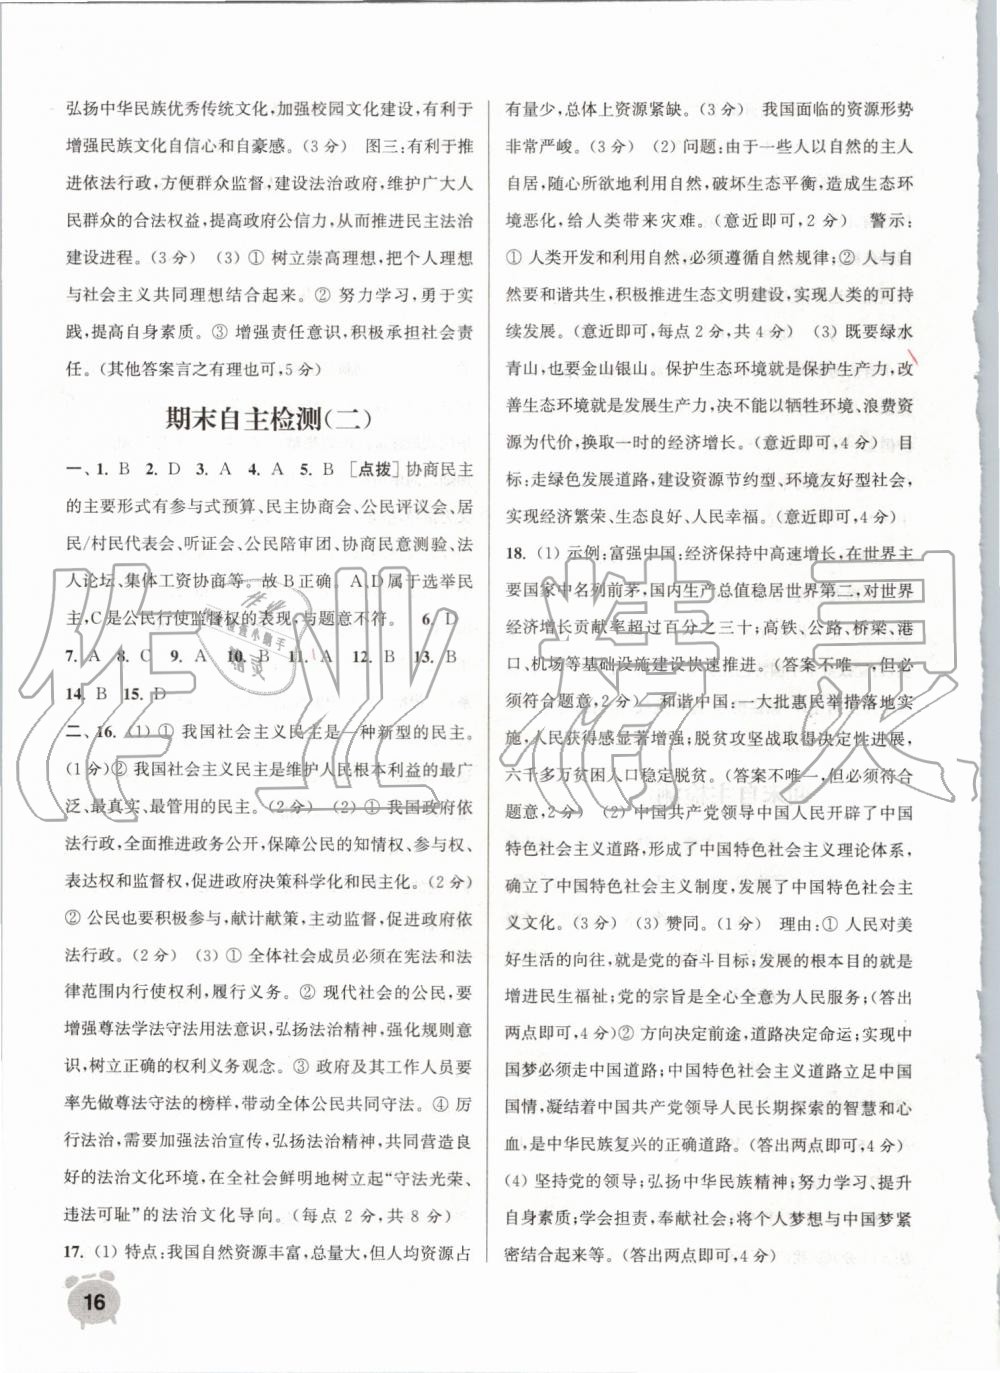 弘扬中华民族优秀传统文化,加强校园文化建设,有利于
增强民族文化自信心和自豪感。(3 分) 图三:有利于推
进依法行政,方便群众监督,建设法治政府,维护广大人
民群众的合法权益,提高政府公信力,从而推进民主法治
建设进程。(3 分) (3) ① 树立崇高理想,把个人理想
与社会主义共同理想结合起来。② 努力学习,勇于实
践,提高自身素质。③ 增强责任意识,积极承担社会责
任。(其他答案言之有理也可,5 分)
期末自主检测(二)
一、1. B 2. D 3. A 4. A 5. B [点拨]协商民主
的主要形式有参与式预算、民主协商会、公民评议会、居
民/村民代表会、听证会、公民陪审团、协商民意测验、法
人论坛、集体工资协商等。故 B 正确。A、D 属于选举民
主,C 是公民行使监督权的表现,与题意不符。 6. D
7. A 8. C 9. A 10. B 11. A 12. B 13. B
14. B 15. D
二、16. (1) ① 我国社会主义民主是一种新型的民主。
(1 分)② 我国社会主义民主是维护人民根本利益的最广
泛、最真实、最管用的民主。(2 分) (2) ① 我国政府依
法行政,全面推进政务公开,保障公民的知情权、参与权、
表达权和监督权,促进政府决策科学化和民主化。(2 分)
② 公民也要积极参与,献计献策,主动监督,促进政府依
法行政。(2 分) (3) ① 全体社会成员必须在宪法和法
律范围内行使权利,履行义务。② 现代社会的公民,要
增强尊法学法守法用法意识,弘扬法治精神,强化规则意
识,树立正确的权利义务观念。③ 政府及其工作人员要
率先做尊法守法的榜样,带动全体公民共同守法。④ 厉
行法治,需要加强法治宣传,弘扬法治精神,共同营造良
好的法治文化环境,在全社会鲜明地树立起“守法光荣、
违法可耻”的法治文化导向。(每点 2 分,共 8 分)
17. (1) 特点:我国自然资源丰富,总量大,但人均资源占
有量少,总体上资源紧缺。(3 分) 我国面临的资源形势
非常严峻。(3 分) (2) 问题:由于一些人以自然的主人
自居,随心所欲地利用自然,破坏生态平衡,造成生态环
境恶化,给人类带来灾难。(意近即可,2 分) 警示:
① 人类开发和利用自然,必须遵循自然规律;② 人与自
然要和谐共生,积极推进生态文明建设,实现人类的可持
续发展。(意近即可,每点 2 分,共 4 分) (3) 既要绿水
青山,也要金山银山。保护生态环境就是保护生产力,改
善生态环境就是发展生产力,决不能以牺牲环境、浪费资
源为代价,换取一时的经济增长。(意近即可,4 分) 目
标:走绿色发展道路,建设资源节约型、环境友好型社会,
实现经济繁荣、生态良好、人民幸福。(意近即可,4 分)
18. (1) 示例:富强中国:经济保持中高速增长,在世界主
要国家中名列前茅,国内生产总值稳居世界第二,对世界
经济增长贡献率超过百分之三十;高铁、公路、桥梁、港
口、机场等基础设施建设快速推进。(答案不唯一,但必
须符合题意,2 分) 和谐中国:一大批惠民举措落地实
施,人民获得感显著增强;脱贫攻坚战取得决定性进展,
六千多万贫困人口稳定脱贫。(答案不唯一,但必须符合
题意,2 分) (2) 中国共产党领导中国人民开辟了中国
特色社会主义道路,形成了中国特色社会主义理论体系,
确立了中国特色社会主义制度,发展了中国特色社会主
义文化。(3 分) (3) 赞同。(1 分) 理由:① 人民对美
好生活的向往,就是党的奋斗目标;发展的根本目的就是
增进民生福祉;党的宗旨是全心全意为人民服务;(答出
两点即可,4 分)② 方向决定前途,道路决定命运;实现中
国梦必须走中国道路;中国特色社会主义道路立足中国
国情,凝结着中国共产党领导人民长期探索的智慧和心
血,是中华民族复兴的正确道路。(答出两点即可,4 分)
(4) 坚持党的领导;弘扬中华民族精神;努力学习、提升
自身素质;学会担责,奉献社会;将个人梦想与中国梦紧
密结合起来等。(答出两点即可,4 分)
16
作业精灵